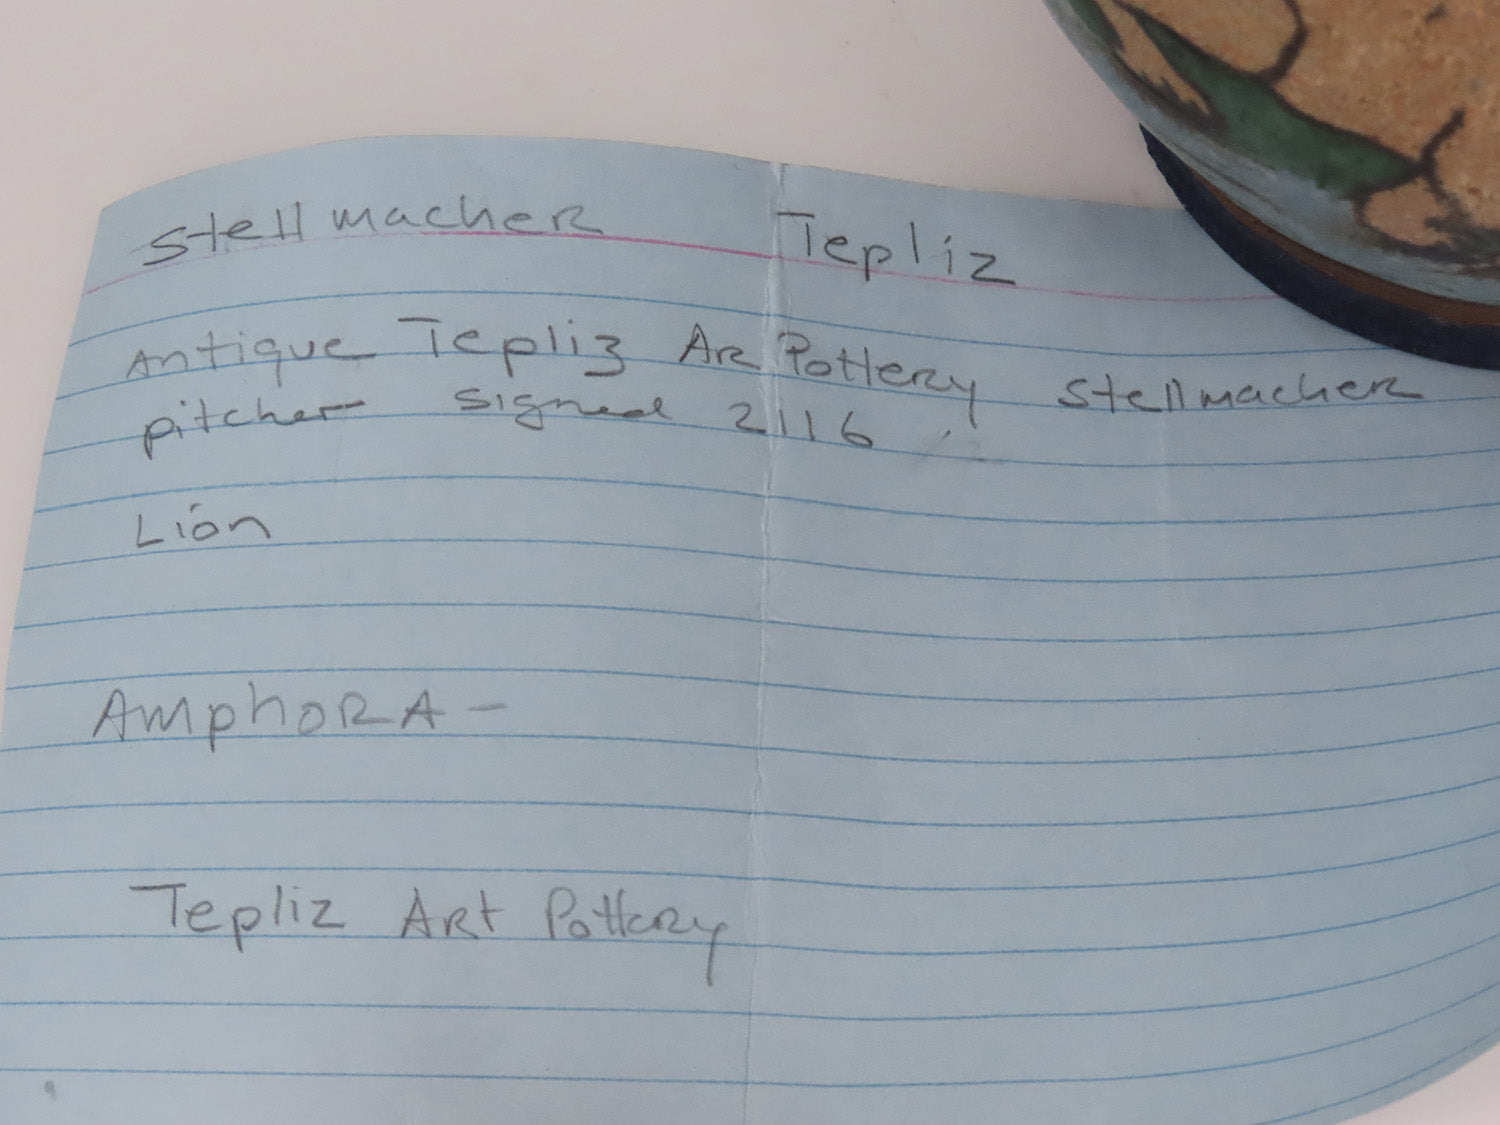 Stellmacher Tepliz
Antique Tepliz Ar Pottery Stellmacher
pitcher signed 2116
Lion
AmphoRA -
Tepliz Art Pottery